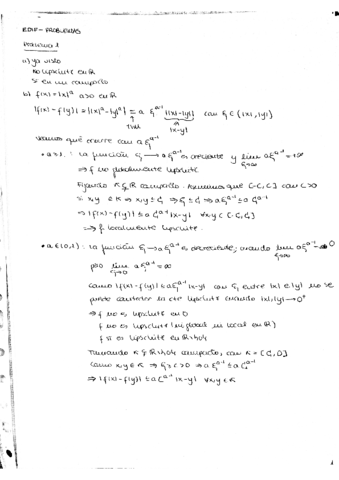 EDIF - PROBLEMAS
PROBLEMA 1
a) ya visto
No Lipschitz en ℝ
Sí en un compacto
b) f(x) = |x|^a a>0 en ℝ
|f(x) - f(y)| = ||x|^a - |y|^a| = a ξ^{a-1} ||x|-|y|| con ξ ∈ (|x|, |y|)
TVM |x-y|
veamos qué ocurre con a ξ^{a-1}
• a>1: la función ξ → a ξ^{a-1} es creciente y lim a ξ^{a-1} = +∞
ξ→∞
⇒ f no globalmente Lipschitz
Fijando K ⊊ ℝ compacto. Asumamos que [-C, C] con C>0
Si x,y ∈ K ⇒ ξ ≤ C ⇒ a ξ^{a-1} ≤ a C^{a-1}
⇒ |f(x) - f(y)| ≤ a C^{a-1} |x-y| ∀x,y ∈ [-C, C]
⇒ f localmente Lipschitz.
• a ∈ (0,1): la función ξ → a ξ^{a-1} es decreciente, cuando lim a ξ^{a-1} → 0
ξ→∞
pero lim a ξ^{a-1} = ∞
ξ→0
Como |f(x) - f(y)| ≤ a ξ^{a-1} |x-y| con ξ entre |x| e |y| no se
puede controlar la cte Lipschitz cuando |x|,|y| → 0⁺
⇒ f no es Lipschitz en 0
f no es Lipschitz (ni global ni local en ℝ)
f sí es Lipschitz en ℝ\{0}
Tomando K ⊊ ℝ\{0} compacto, con K = [C, D]
Como x,y ∈ K ⇒ ξ ≥ C > 0 ⇒ a ξ^{a-1} ≤ a C^{a-1}
⇒ |f(x) - f(y)| ≤ a C^{a-1} |x-y| ∀x,y ∈ K
1